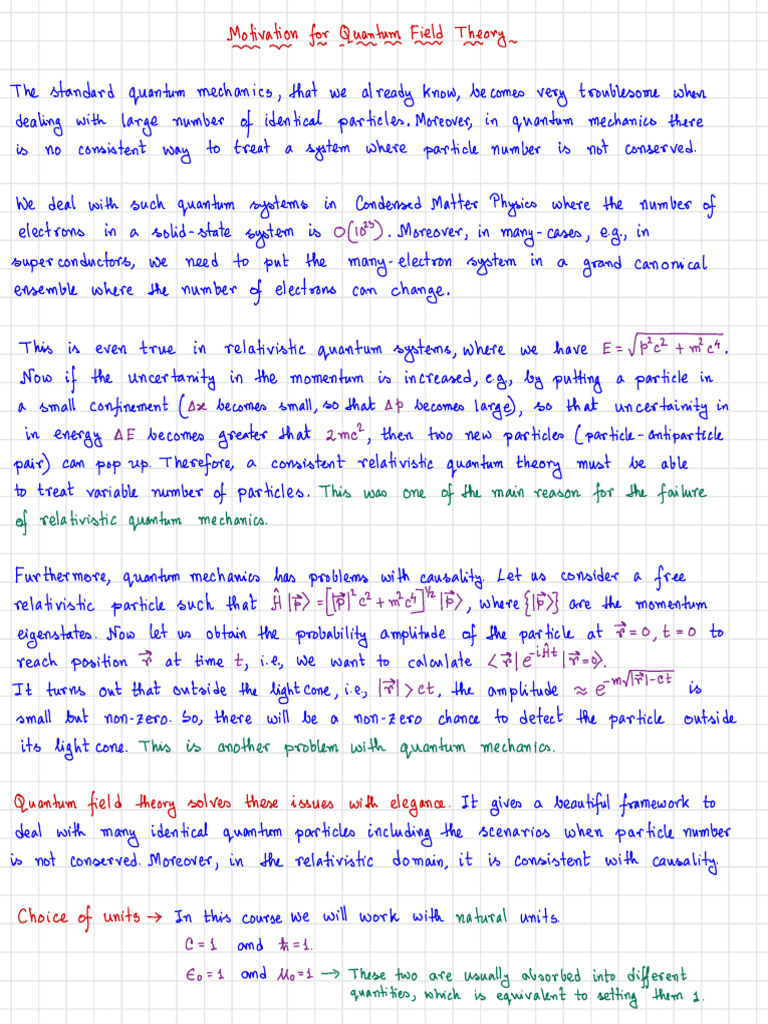 Motivation for Quantum Field Theory
The standard quantum mechanics, that we already know, becomes very troublesome when
dealing with large number of identical particles. Moreover, in quantum mechanics there
is no consistent way to treat a system where particle number is not conserved.
We deal with such quantum systems in Condensed Matter Physics where the number of
electrons in a solid-state system is O(10²³). Moreover, in many-cases, e.g., in
superconductors, we need to put the many-electron system in a grand canonical
ensemble where the number of electrons can change.
This is even true in relativistic quantum systems, where we have E = √(p²c² + m²c⁴).
Now if the uncertainity in the momentum is increased, e.g., by putting a particle in
a small confinement (Δx becomes small, so that Δp becomes large), so that uncertainity in
in energy ΔE becomes greater that 2mc², then two new particles (particle-antiparticle
pair) can pop up. Therefore, a consistent relativistic quantum theory must be able
to treat variable number of particles. This was one of the main reason for the failure
of relativistic quantum mechanics.
Furthermore, quantum mechanics has problems with causality. Let us consider a free
relativistic particle such that Ĥ|p⃗⟩ = [|p⃗|²c² + m²c⁴]^{1/2} |p⃗⟩, where {|p⃗⟩} are the momentum
eigenstates. Now let us obtain the probability amplitude of the particle at r⃗ = 0, t = 0 to
reach position r⃗ at time t, i.e., we want to calculate ⟨r⃗| e^{-iĤt} |r⃗=0⟩.
It turns out that outside the light cone, i.e., |r⃗| > ct, the amplitude ≈ e^{-m√(|r⃗|-ct)} is
small but non-zero. So, there will be a non-zero chance to detect the particle outside
its light cone. This is another problem with quantum mechanics.
Quantum field theory solves these issues with elegance. It gives a beautiful framework to
deal with many identical quantum particles including the scenarios when particle number
is not conserved. Moreover, in the relativistic domain, it is consistent with causality.
Choice of units → In this course we will work with natural units.
C = 1 and ħ = 1.
ε₀ = 1 and μ₀ = 1 → These two are usually absorbed into different
quantities, which is equivalent to setting them 1.